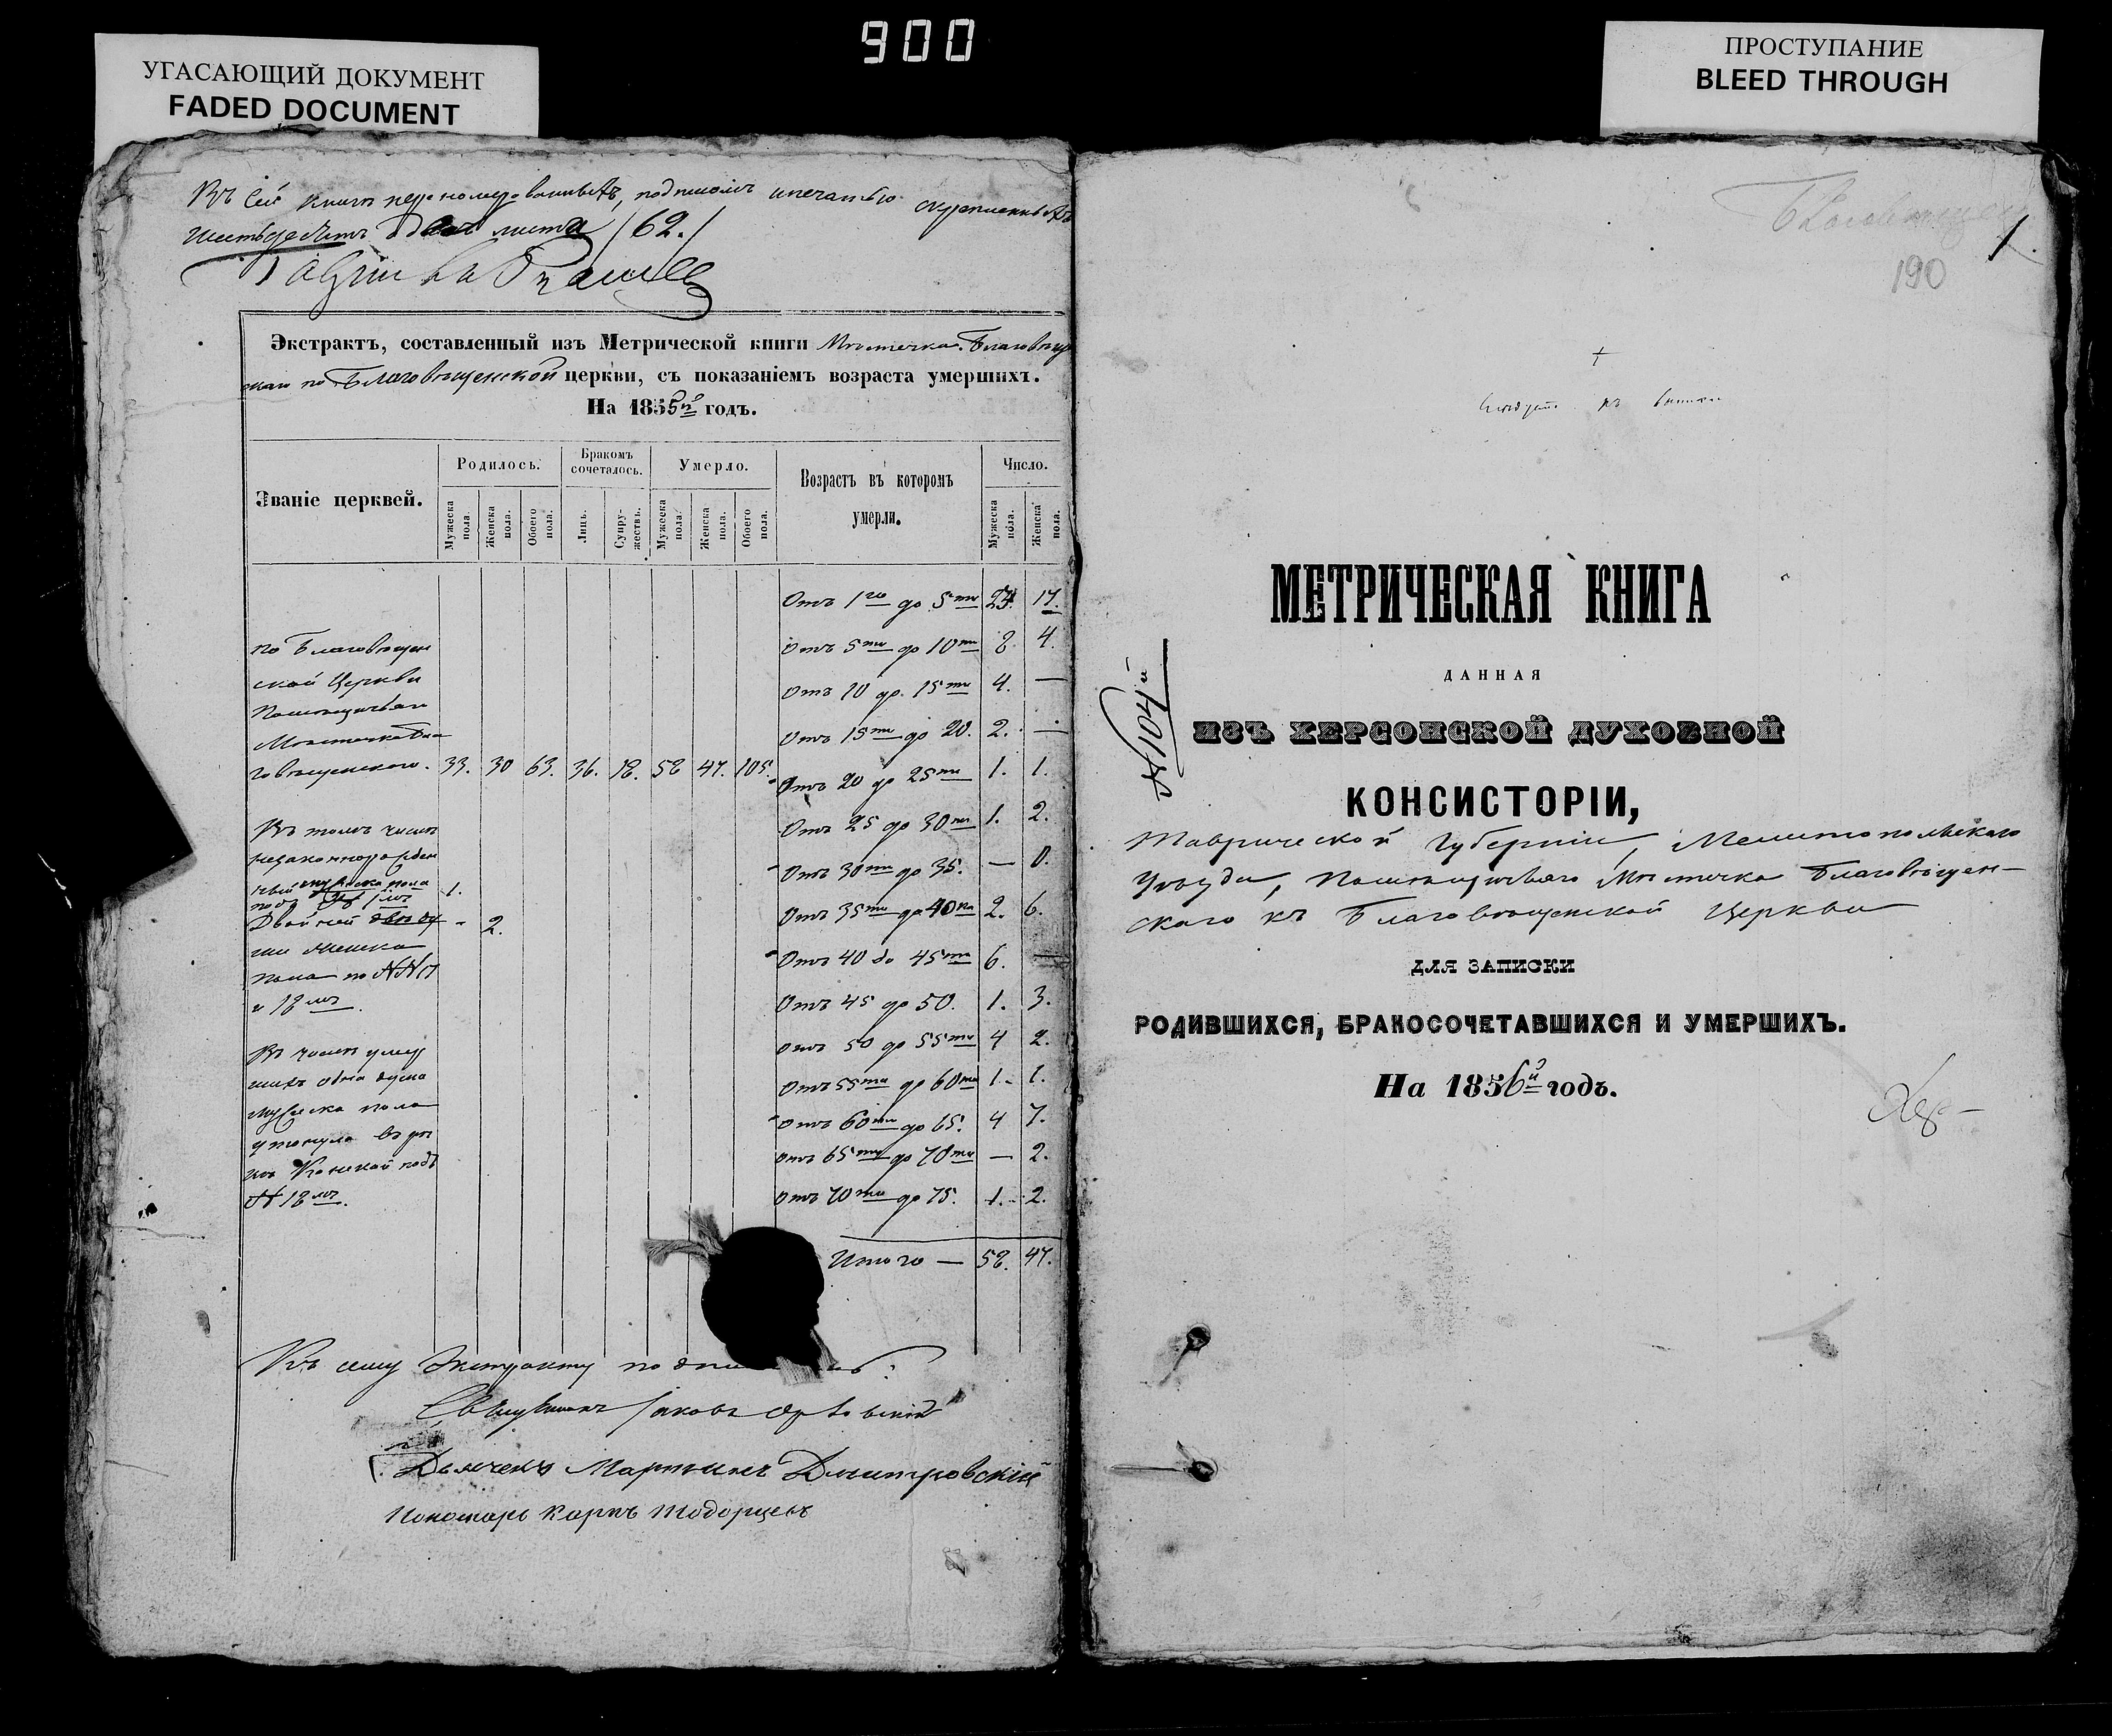 900
УГАСАЮЩИЙ ДОКУМЕНТ
FADED DOCUMENT
ПРОСТУПАНИЕ
BLEED THROUGH
Въ сей книгѣ перенумерованныхъ, подписомъ и печатью скрепленныхъ
шестьдесятъ два листа /62./
Экстрактъ, составленный изъ Метрической книги Мѣстечка Благовѣщен
скаго по Благовѣщенской церкви, съ показаніемъ возраста умершихъ.
На 1855й годъ.
Званіе церквей.
Родилось.
Бракомъ сочеталось.
Умерло.
Возрастъ въ которомъ умерли.
Число.
Мужеска пола.
Женска пола.
Обоего пола.
Лицъ.
Супружествъ.
Мужеска пола.
Женска пола.
Обоего пола.
Мужеска пола.
Женска пола.
По Благовѣщен
ской Церкви
Помѣщичьяго
Мѣстечка Бла
говѣщенскаго. 33. 30 63. 36. 18. 58 47. 105.
Въ томъ числѣ
незаконнорожден
ный мужеска пола
подъ № 1мъ 1.
Двойней
женска - 2.
пола по №№
и 18мъ.
Въ числѣ умер
шихъ одна душа
мужеска пола
утонула въ рѣ
кѣ Конской подъ
№ 18мъ.
Отъ 1го до 5ти 17.
Отъ 5ти до 10ти 8 4.
Отъ 10 до 15ти 4. —
Отъ 15ти до 20. 2. —
Отъ 20 до 25ти 1. 1.
Отъ 25 до 30ти 1. 2.
Отъ 30ти до 35. — 0.
Отъ 35ти до 40ка 2. 6.
Отъ 40 до 45ти 6. —
Отъ 45 до 50. 1. 3.
Отъ 50 до 55ти 4 2.
Отъ 55ти до 60ти 1. 1.
Отъ 60ти до 65. 4 7.
Отъ 65ти до 70ти — 2.
Отъ 70ти до 75. 1. 2.
Итого — 58. 47.
Къ сему Экстракту
Священникъ Іаковъ
Дьячекъ Мартинъ Дмитровскій
Пономарь Карпъ Тодорцевъ
1.
190
МЕТРИЧЕСКАЯ КНИГА
ДАННАЯ
ИЗЪ ХЕРСОНСКОЙ ДУХОВНОЙ
КОНСИСТОРІИ,
№104й
Таврической Губерніи, Мелитопольскаго
Уѣзда, Помѣщичьяго Мѣстечка Благовѣщен-
скаго къ Благовѣщенской Церкви
ДЛЯ ЗАПИСКИ
РОДИВШИХСЯ, БРАКОСОЧЕТАВШИХСЯ И УМЕРШИХЪ.
На 1856й годъ.
Хер-